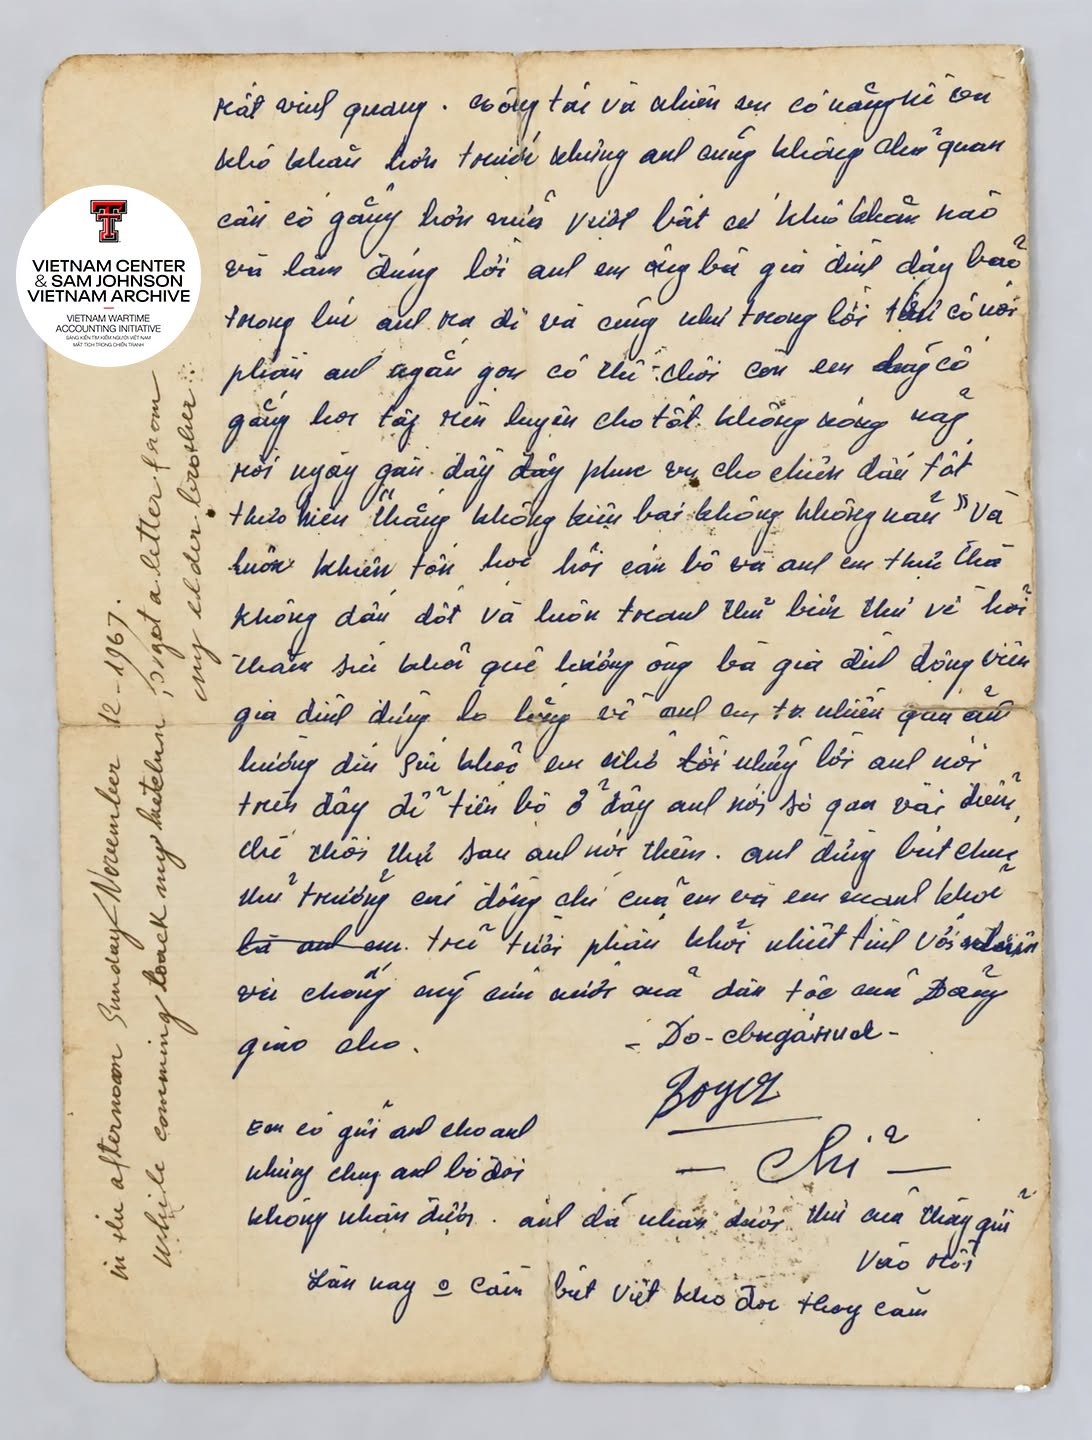 VIETNAM CENTER
& SAM JOHNSON
VIETNAM ARCHIVE
VIETNAM WARTIME
ACCOUNTING INITIATIVE
SÁNG KIẾN TÌM KIẾM NGƯỜI VIỆT NAM
MẤT TÍCH TRONG CHIẾN TRANH
rất vinh quang. công tác và nhiệm vụ có nặng nề còn
khó khăn hơn trước nhưng anh cũng không chủ quan
cần cố gắng hơn nữa vượt bất cứ khó khăn nào
và làm đúng lời anh em ông bà gia đình dậy bảo
trong lúc anh ra đi và cũng như trong lời có nói
phần anh ngắn gọn có thế thôi còn em cố
gắng học tập rèn luyện cho tốt không nóng nảy
rồi ngày gần đây đây phục vụ cho chiến đấu tốt
thực hiện thắng không kiêu bại không không nản" và
luôn khiên tốn học hỏi cán bộ và anh em thực thà
không dấu dốt và luôn tranh thủ biên thư về hỏi
thăm sức khỏe quê hương ông bà gia đình động viên
gia đình đừng lo lắng về anh em tr. nhiên qua ăn
hướng dẫn giữ khỏe em nhớ lời những lời anh nói
trên đây để tiến bộ ở đây anh nói sơ qua vài điểm
chỉ thôi thư sau anh nói thêm. anh dừng bút chúc
thủ trưởng các đồng chí của em và em mạnh khỏe
là anh em. trẻ tuổi phấn khởi nhiệt tình với
vụ chống mỹ cứu nước mà dân tộc mà Đảng
giao cho.
Em có gửi anh cho anh
nhưng chúng anh bộ đội
không nhận được. anh đã nhận được thư của thầy gửi
vào rồi
Lần nay cầm bút viết khó đọc thông cảm
in the afternoon Sunday November 12-1967.
while comming back my I got a letter from
my elder brother